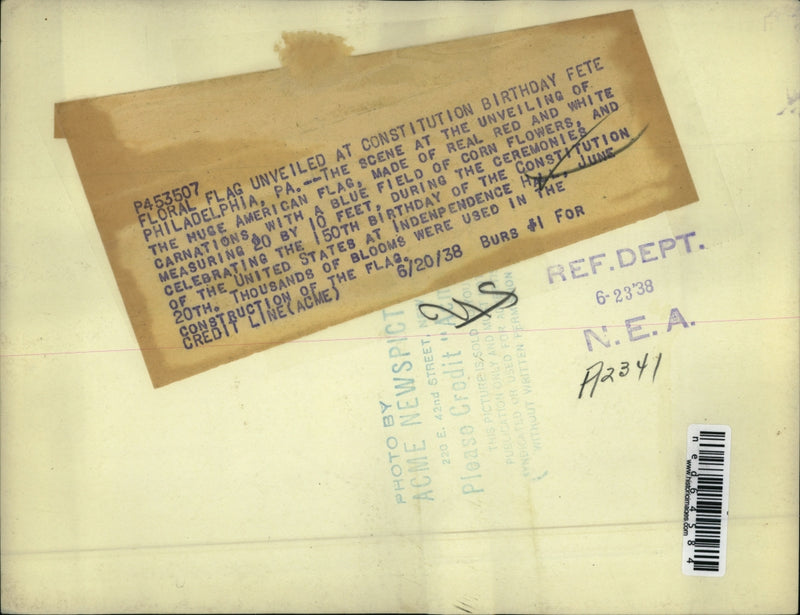 P453507
FLORAL FLAG UNVEILED AT CONSTITUTION BIRTHDAY FETE
PHILADELPHIA, PA.--THE SCENE AT THE UNVEILING OF
THE HUGE AMERICAN FLAG, MADE OF REAL RED AND WHITE
CARNATIONS, WITH A BLUE FIELD OF CORN FLOWERS, AND
MEASURING 20 BY 10 FEET, DURING THE CEREMONIES
CELEBRATING THE 150TH BIRTHDAY OF THE CONSTITUTION
OF THE UNITED STATES AT INDENPENDENCE JUNE
20TH. THOUSANDS OF BLOOMS WERE USED IN THE
CONSTRUCTION OF THE FLAG.
CREDIT LINE(ACME) 6/20/38 BURS $1 FOR
REF. DEPT.
6-23'38
N. E. A.
A2341
PHOTO BY
ACME NEWSPICT
220 E. 42nd STREET,
Please Credit "
THIS PICTURE IS SOLD
PUBLICATION ONLY AND
SYNDICATED OR USED FOR
WITHOUT WRITTEN PERMISSION
www.historicimages.com
ned64584